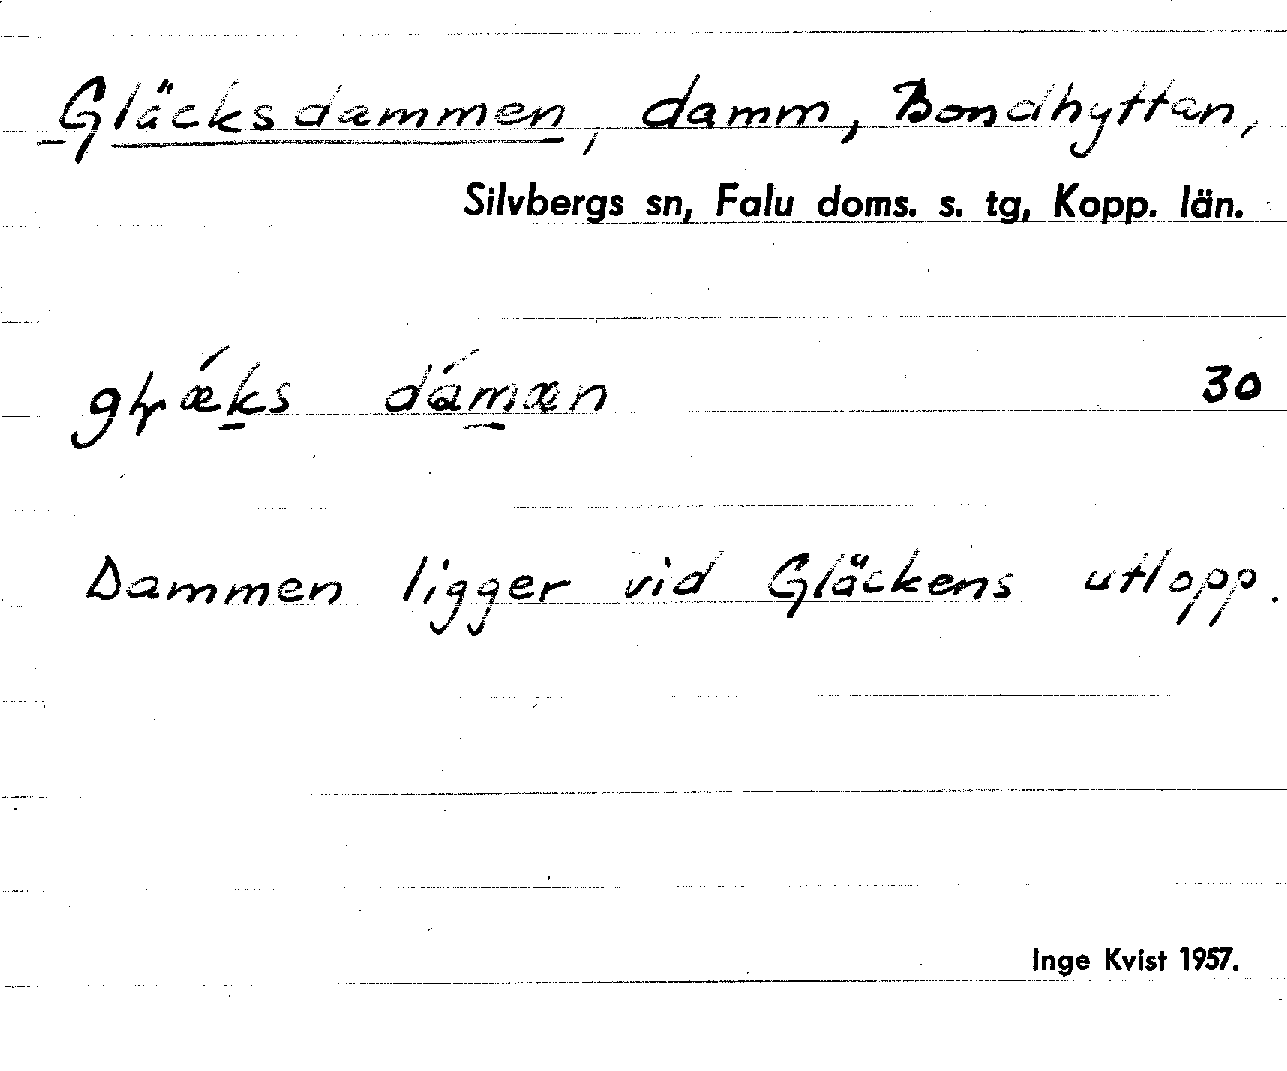 Gläcksdammen, damm, Bondhyttan,
Silvbergs sn, Falu doms. s. tg, Kopp. län.
30
Dammen ligger vid Gläckens utlopp.
Inge Kvist 1957.